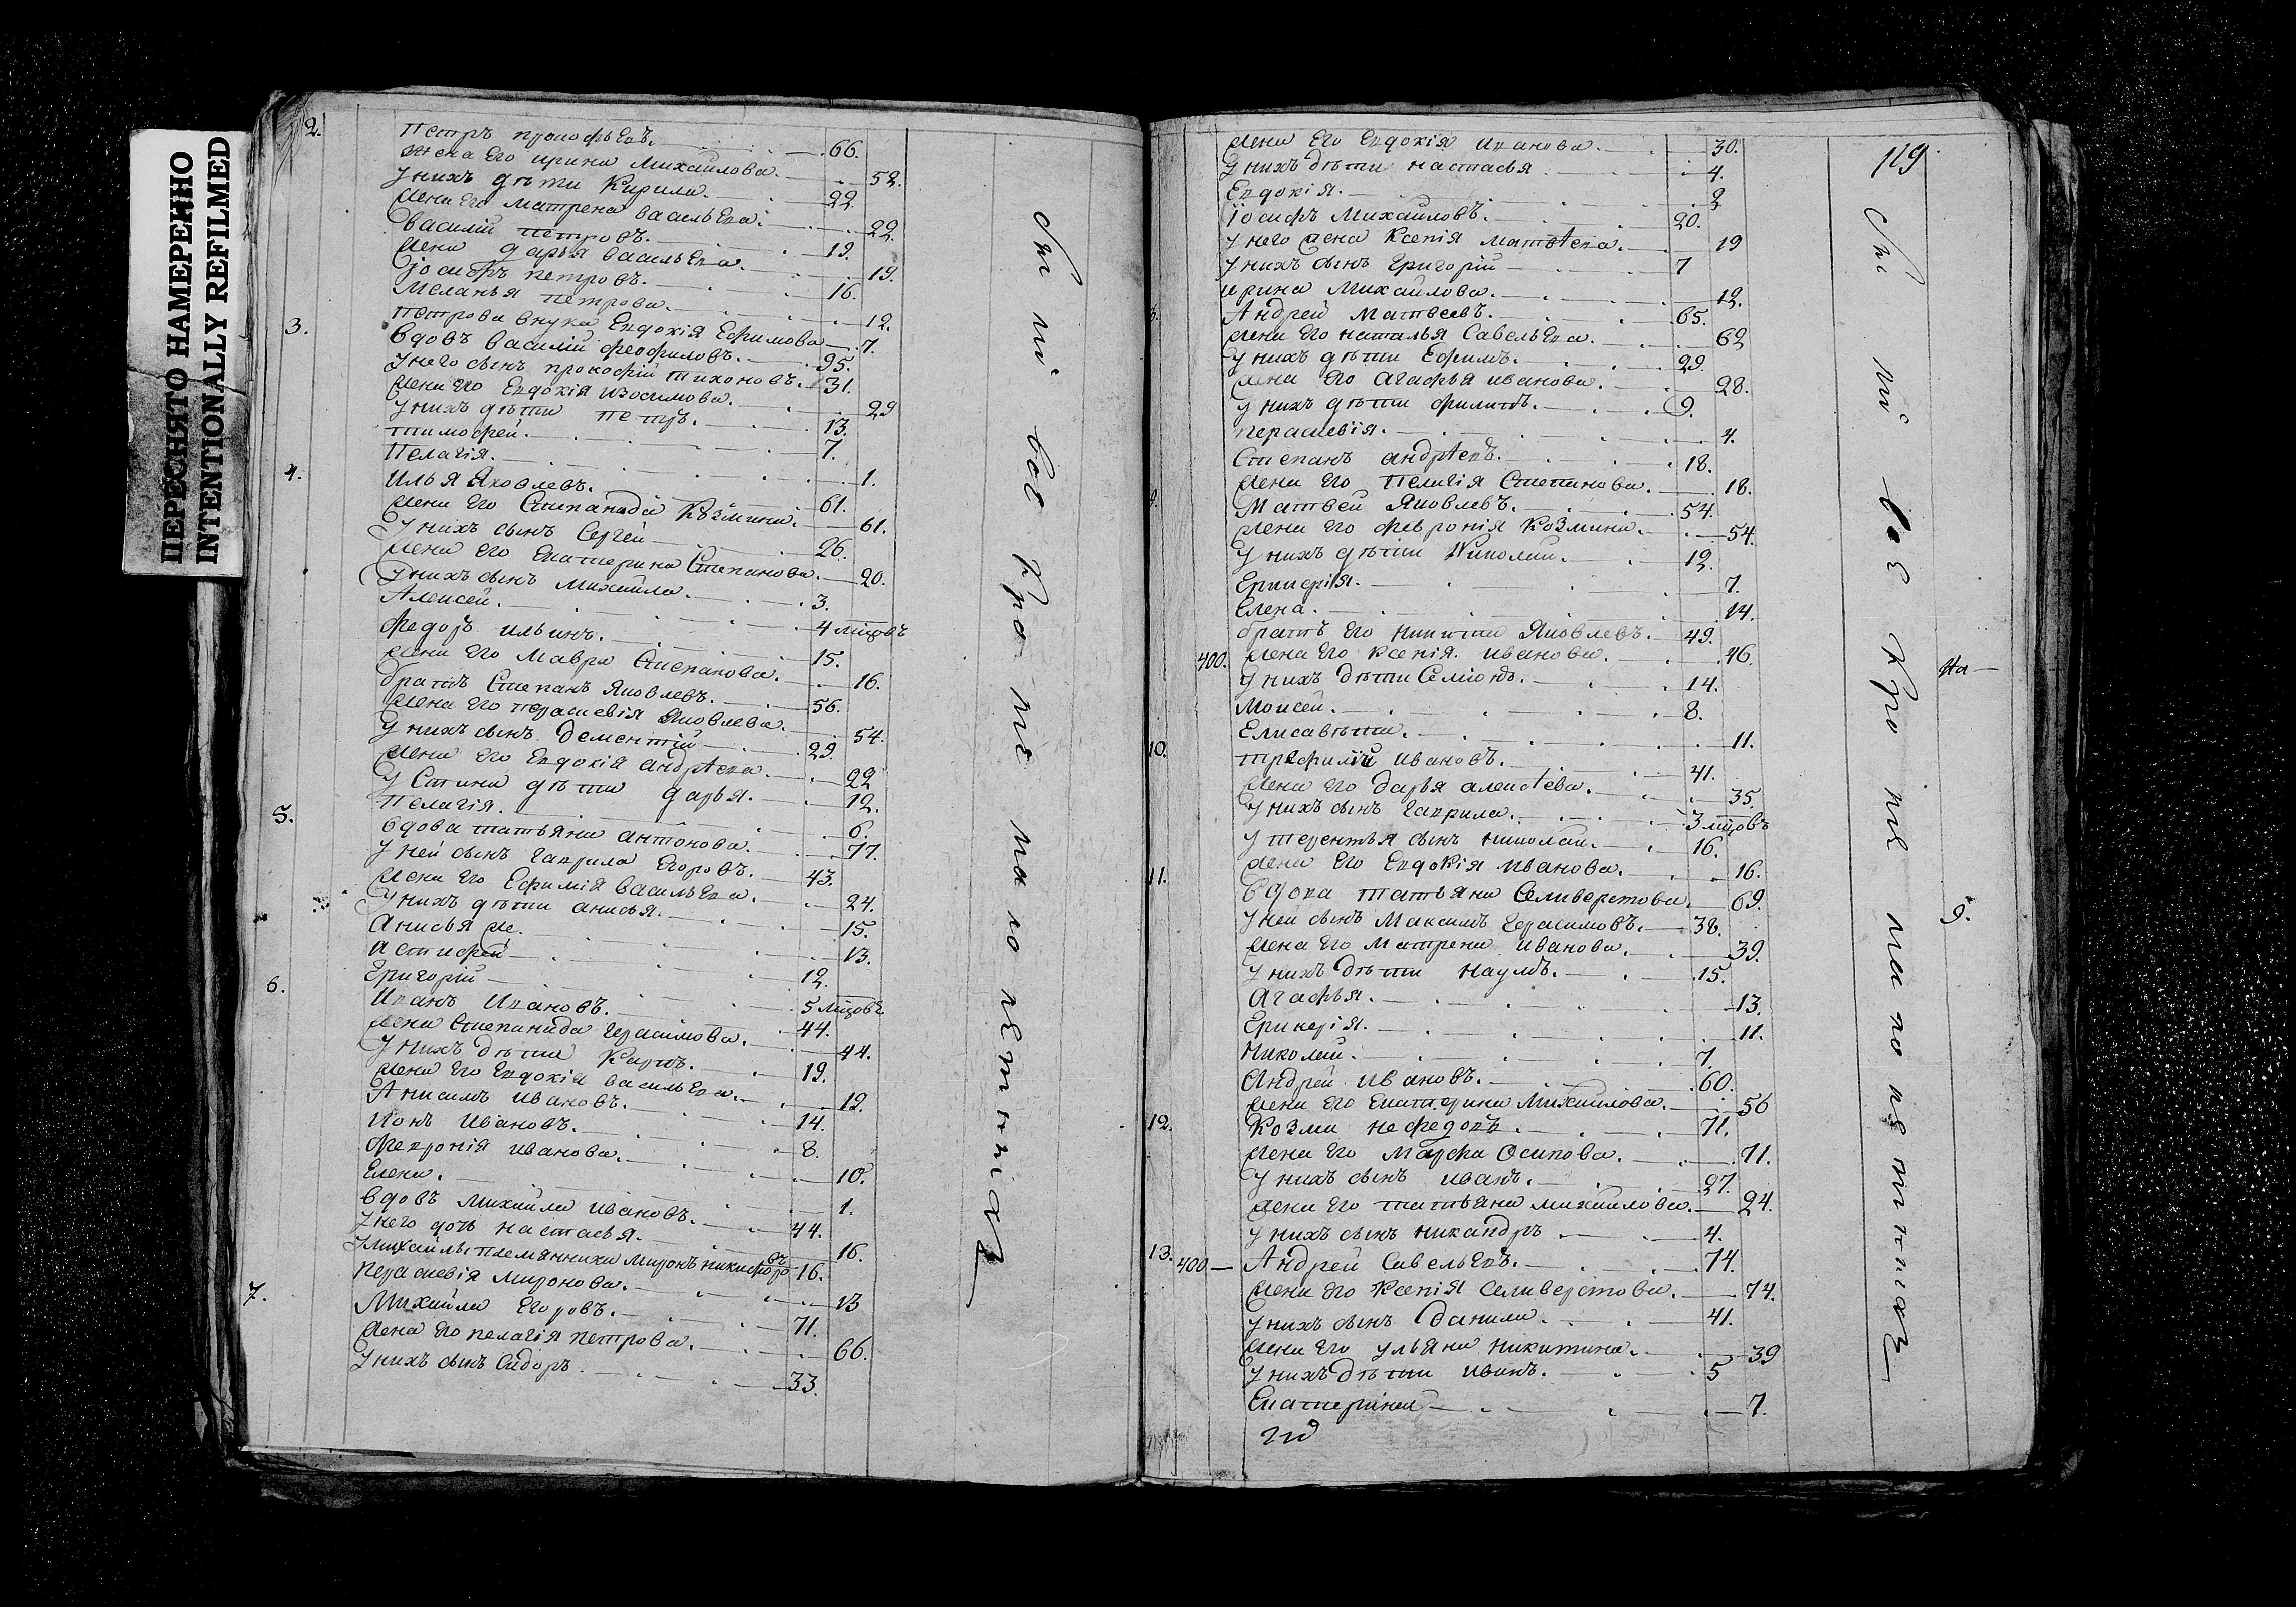 ПЕРЕСНЯТО НАМЕРЕННО
INTENTIONALLY REFILMED
2. Петръ прокофьевъ. 66.
жена Его ирина Михайлова. 52.
у нихъ дѣти Кирила. 22.
жена Его матрена васильева. 22.
василій петровъ. 19.
жена дарья васильева. 19.
Іосифъ петровъ. 16.
Меланья петрова. 12.
петрова внука Евдокія Ефимова 7.
3. вдовъ василій феофиловъ. 95.
у него сынъ прокофій тихоновъ. 31.
жена его Евдокія изосимова. 29
у нихъ дѣти петръ. 13.
тимофей. 7.
Пелагія. 1.
4. Илья Яковлевъ. 61.
жена его Степанида Козмина. 61.
у нихъ сынъ Сергей 26.
жена его Екатерина Степанова. 20.
у нихъ сынъ Михайла. 3.
Алексей. 4 мцовъ
федоръ ильинъ. 15.
жена его Мавра Степанова. 16.
братъ Степанъ Яковлевъ. 56.
жена его параскевія Яковлева. 54.
у нихъ сынъ дементій 29.
жена его Евдокія андрѣева. 22
у Степана дѣти дарья. 12.
Пелагія. 6.
5. вдова татьяна антонова. 77.
у ней сынъ гаврила Егоровъ. 43.
жена его Ефимія васильева. 24.
у нихъ дѣти анисья. 15.
Анисья же. 13.
12.
Григорій 5 мцовъ
6. Иванъ Ивановъ. 44.
жена Степанида герасимова. 44.
у нихъ дѣти Карпъ. 19.
жена его Евдокія васильева. 19.
Анисимъ ивановъ. 14.
Іонъ ивановъ. 8.
феврония иванова. 10.
Елена. 1.
вдовъ михайла ивановъ. 44.
у него дочь настасья. 16.
у михайлы племянники миронъ никифоровъ 16.
параскевія миронова. 13
7. Михайла Егоровъ. 71.
жена его пелагія петрова. 66.
у нихъ сынъ Сидоръ. 33.
Сіи всѣ кромѣ малолетнихъ
119
жена его Евдокія иванова. 30.
у нихъ дѣти настасья 4.
Евдокія. 2
Іосифъ Михайловъ. 20.
у него жена Ксенія матвѣева. 19
у нихъ сынъ григорій 7
ирина Михайлова. 12.
8. Андрей матвеевъ. 65.
жена его наталья Савельева. 62
у нихъ дѣти Ефимъ. 29.
жена его агафья иванова. 28.
у нихъ дѣти филипъ. 9.
параскевія. 4.
Степанъ андрѣевъ. 18.
жена его Пелагія Степанова. 18.
9. Матвей Яковлевъ. 54.
жена его феврония Козмина. 54.
у нихъ дѣти Николай. 12.
7.
Елена. 14.
братъ его никита Яковлевъ. 49.
400. жена его ксенія иванова. 46.
у нихъ дѣти Семіонъ. 14.
Моисей. 8.
Елисавѣта. 11.
10. трифилій ивановъ. 41.
жена его дарья алексѣева. 35.
у нихъ сынъ гаврила. 3 мцовъ
у терентья сынъ николай. 16.
жена его Евдокія иванова. 16.
11. вдова татьяна Селиверстова. 69.
у ней сынъ Максимъ герасимовъ. 38.
жена его матрена иванова. 39.
у нихъ дѣти наумъ. 15.
Агафья. 13.
11.
николай. 7.
Андрей ивановъ. 60.
жена его Екатерина михайлова. 56
12. Козма нефедовъ. 71.
жена его Марфа Осипова. 71.
у нихъ сынъ иванъ. 27.
жена его татьяна михайлова. 24.
у нихъ сынъ никандръ 4.
13. 400 Андрей Савельевъ. 74.
жена его ксенія Селиверстова. 74.
у нихъ сынъ данила. 41.
жена его ульяна никитина. 39
у нихъ дѣти иванъ. 5
7.
Сіи всѣ кромѣ малолетнихъ
на
9.